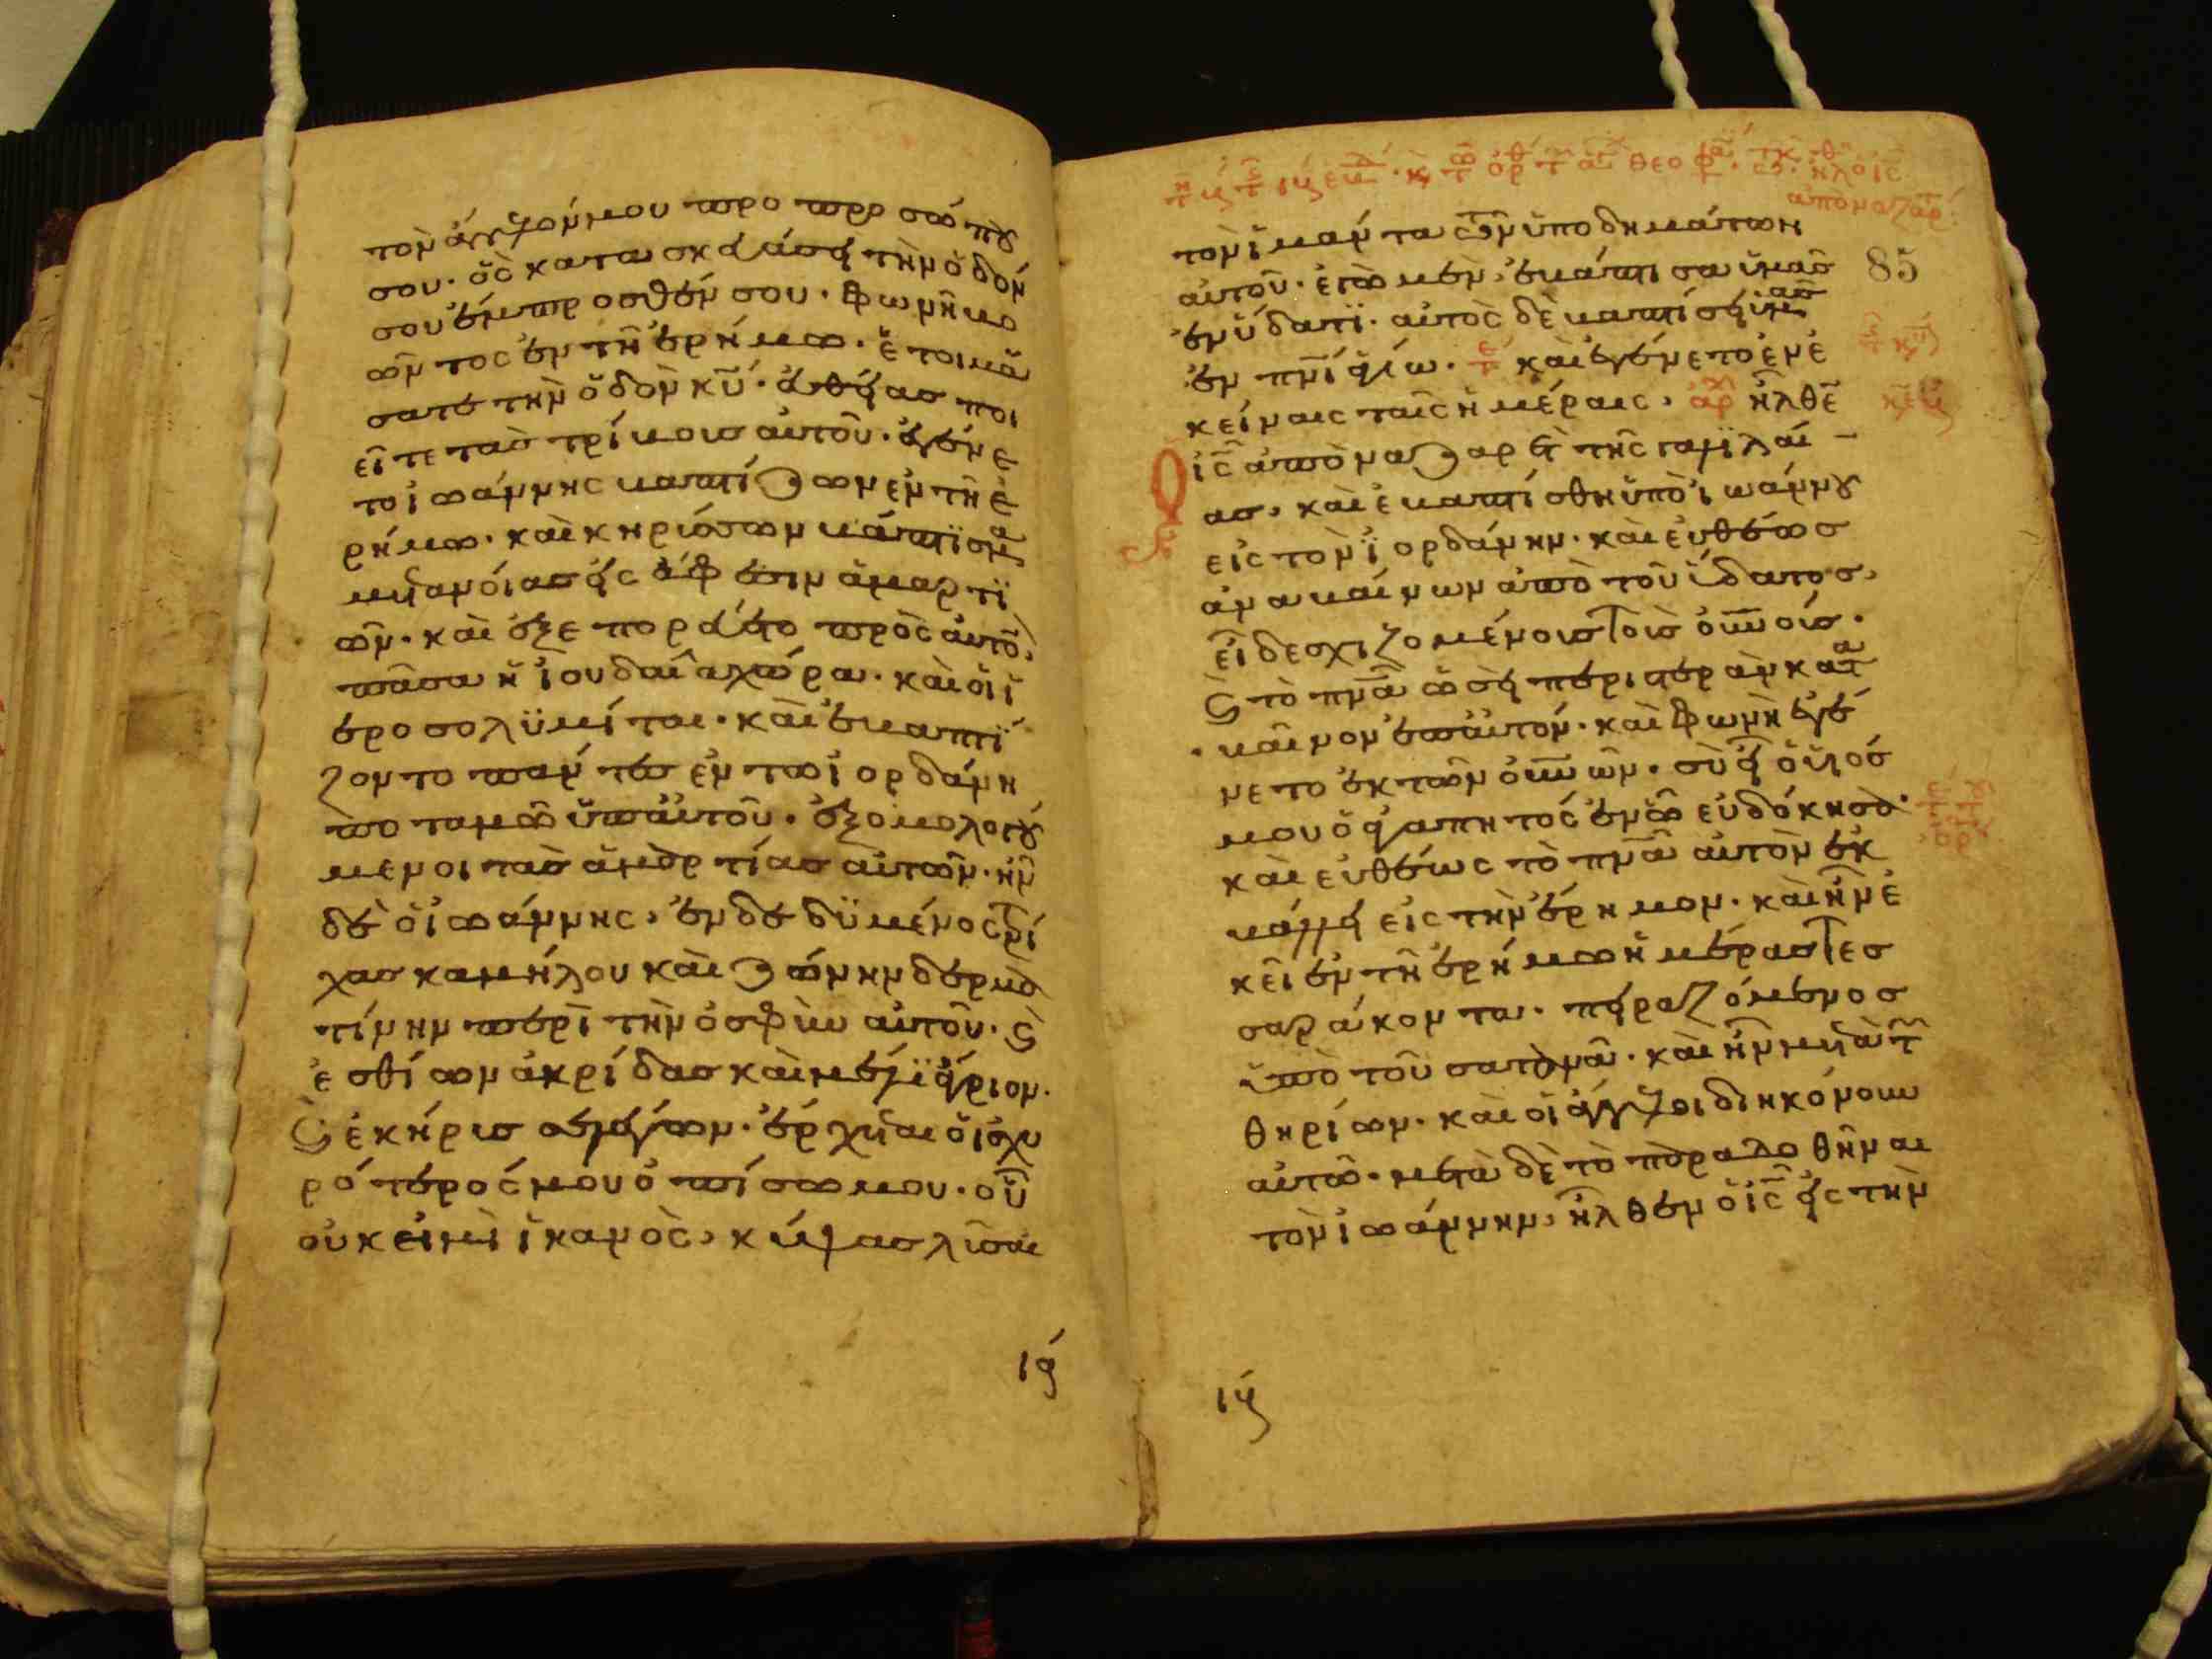 τὸν ἄγγελόν μου προ προσώπου
σου· ὃς κατασκευάσει τὴν ὁδόν
σου ἔμπροσθέν σου· φωνὴ βο
ῶντος ἐν τῆ ἐρήμω· ἑτοιμά
σατε τὴν ὁδὸν κ̅υ̅· εὐθείας ποι
εῖτε τὰς τρίβους αὐτοῦ· ἐγένε
το ἰωάννης βαπτίζων ἐν τῆ ἐ
ρήμω· καὶ κηρύσσων βάπτισμα
μετανοίας εἰς ἄφεσιν ἁμαρτι
ῶν· καὶ ἐξεπορεύετο πρὸς αὐτὸν,
πᾶσα ἡ ἰουδαία χώρα· καὶ οἱ ἱ
εροσολυμίται· καὶ ἐβαπτί
ζοντο πάντες ἐν τῶ ἰορδάνη
ποταμῶ ὑπ αὐτοῦ· ἐξομολογού
μενοι τὰς ἁμαρτίας αὐτῶν· ἦν
δὲ ὁ ἰωάννης, ἐνδεδυμένος τρί
χας καμήλου καὶ ζώνην δερμα
τίνην περὶ τὴν ὀσφὺν αὐτοῦ· ϗ
ἐσθίων ἀκρίδας καὶ μέλι ἄγριον·
ϗ ἐκήρυσσε λέγων· ἔρχεται ὁ ἰσχυ
ρότερός μου ὀπίσω μου· οὗ
οὐκ εἰμὶ ἱκανὸς, κύψας λῦσαι
ις
τὸν ἱμάντα τῶν ὑποδημάτων
αὐτοῦ· ἐγὼ μὲν ἐβάπτισα ὑμᾶς
85
ἐν ὕδατι· αὐτὸς δὲ βαπτίσει ὑμᾶς
ἐν π̅ν̅ι̅ ἁγίω· καὶ ἐγένετο ἐν ἐ
κείναις ταῖς ἡμέραις, ἀρχ ἦλθεν
ι̅ς̅ ἀπὸ ναζαρὲτ τῆς γαλιλαί
ας, καὶ ἐβαπτίσθη ὑπὸ ἰωάννου
εἰς τὸν ἰορδάνην· καὶ εὐθέως
ἀναβαίνων ἀπὸ τοῦ ὕδατος,
εἶδε σχιζομένους τοὺς ο̅υ̅ν̅ούς·
ϗ τὸ π̅ν̅α̅ ὡσεὶ περιστερὰν κατα
βαῖνον ἐπ αὐτόν· καὶ φωνὴ ἐγέ
νετο ἐκ τῶν ο̅υ̅ν̅ῶν· σὺ εἶ ὁ υἱός
μου ὁ ἀγαπητός ἐν ὧ εὐδόκησα·
καὶ εὐθέως τὸ π̅ν̅α̅ αὐτὸν ἐκ
βάλλει εἰς τὴν ἔρημον· καὶ ἦν ἐ
κεῖ ἐν τῆ ἐρήμω ἡμέρας τεσ
σαράκοντα· πειραζόμενος
ὑπὸ τοῦ σατανᾶ· καὶ ἦν μετὰ τῶν
θηρίων· καὶ οἱ ἄγγελοι διηκόνουν
αὐτῶ· μετὰ δὲ τὸ παραδοθῆναι
τὸν ἰωάννην, ἦλθεν ὁ ι̅ς̅ εἰς τὴν
ιζ